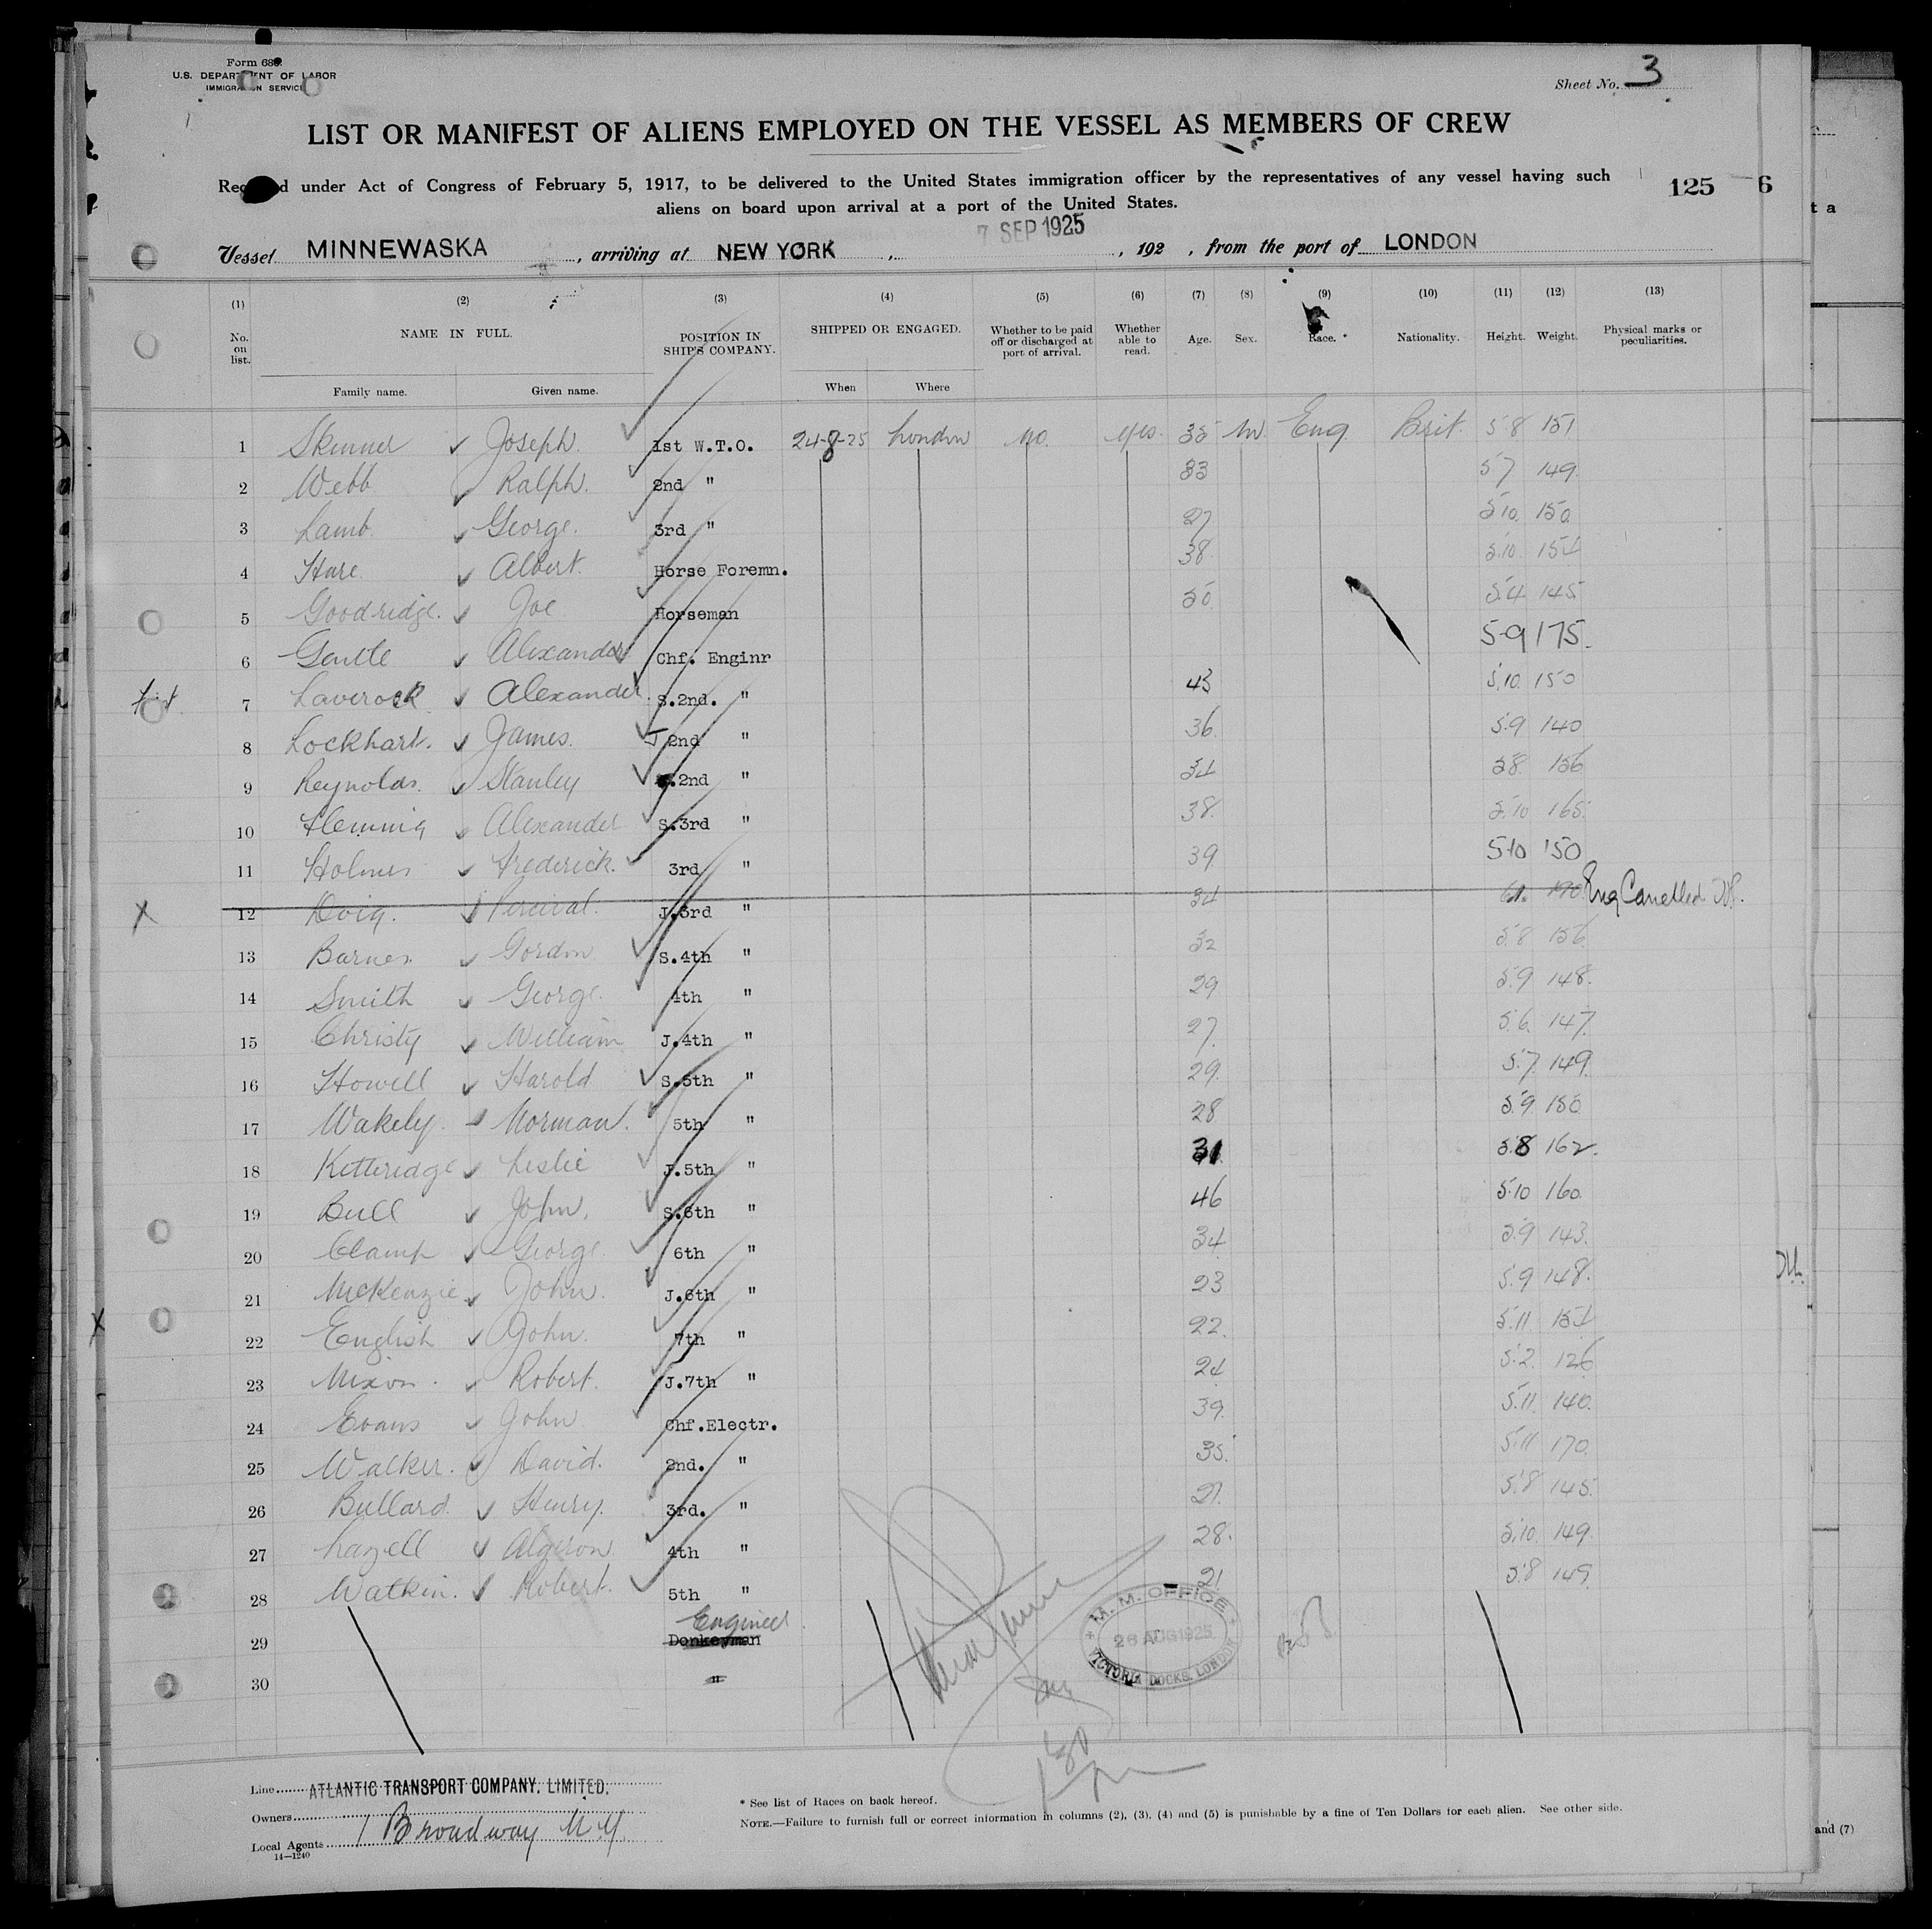 Form 689
U.S. DEPARTMENT OF LABOR
IMMIGRATION SERVICE
Sheet No. 3
LIST OR MANIFEST OF ALIENS EMPLOYED ON THE VESSEL AS MEMBERS OF CREW
Required under Act of Congress of February 5, 1917, to be delivered to the United States immigration officer by the representatives of any vessel having such
aliens on board upon arrival at a port of the United States.
125 6
7 SEP 1925
Vessel MINNEWASKA, arriving at NEW YORK, , 192 , from the port of LONDON
(1) (2) (3) (4) (5) (6) (7) (8) (9) (10) (11) (12) (13)
No. on list. NAME IN FULL. POSITION IN SHIP'S COMPANY. SHIPPED OR ENGAGED. Whether to be paid off or discharged at port of arrival. Whether able to read. Age. Sex. Race. * Nationality. Height. Weight. Physical marks or peculiarities.
Family name. Given name. When Where
1 Skinner Joseph. 1st W.T.O. 24-8-25 London No. Yes. 35 M. Eng. Brit. 5 8 151
2 Webb Ralph. 2nd " 33 5 7 149
3 Lamb George. 3rd " 27 5 10. 150
4 Hare Albert. Horse Foremn. 38. 5.10. 154
5 Goodridge. Joe Horseman 50 5.4 145
6 Gentle Alexander Chf. Enginr 5-9 175.
7 Laverock Alexander. S.2nd. " 43 5.10. 150
8 Lockhart. James. J 2nd " 36. 5.9 140
9 Reynolds. Stanley .2nd " 34 5 8. 156
10 Fleming Alexander S.3rd " 38. 5.10 165.
11 Holmes Frederick. 3rd " 39. 5-10 150
12 Doig. Percival. J.3rd " 34 190 Eng Cancelled
13 Barnes Gordon S.4th " 32 5.8 156
14 Smith George. 4th " 29 5.9 148.
15 Christy William J.4th " 27. 5.6. 147.
16 Howell Harold S.5th " 29. 5.7 149.
17 Wakely. Norman. 5th " 28 5.9. 150
18 Ketteridge Leslie J.5th " 31 5.8 162.
19 Bull John. S.6th " 46 5.10 160.
20 Clamp George. 6th " 34 5.9 143.
21 McKenzie John. J.6th " 23 5.9 148.
22 English John. 7th " 22. 5.11. 154
23 Nixon. Robert. J.7th " 24 5.2. 126
24 Evans John Chf.Electr. 39. 5.11. 140.
25 Walker. David. 2nd. " 35. 5.11 170.
26 Bullard. Henry. 3rd. " 27. 5.8 145.
27 Lazell Algeron 4th " 28. 5.10. 149.
28 Watkin. Robert. 5th " 21 5.8 149.
Engineer.
29 Donkeyman
30 "
M. M. OFFICE
26 AUG 1925
VICTORIA DOCKS. LONDON
Line ATLANTIC TRANSPORT COMPANY, LIMITED.
Owners
Local Agents 1 Broadway N.Y.
14—1240
* See list of Races on back hereof.
NOTE.—Failure to furnish full or correct information in columns (2), (3), (4) and (5) is punishable by a fine of Ten Dollars for each alien. See other side.
and (7)